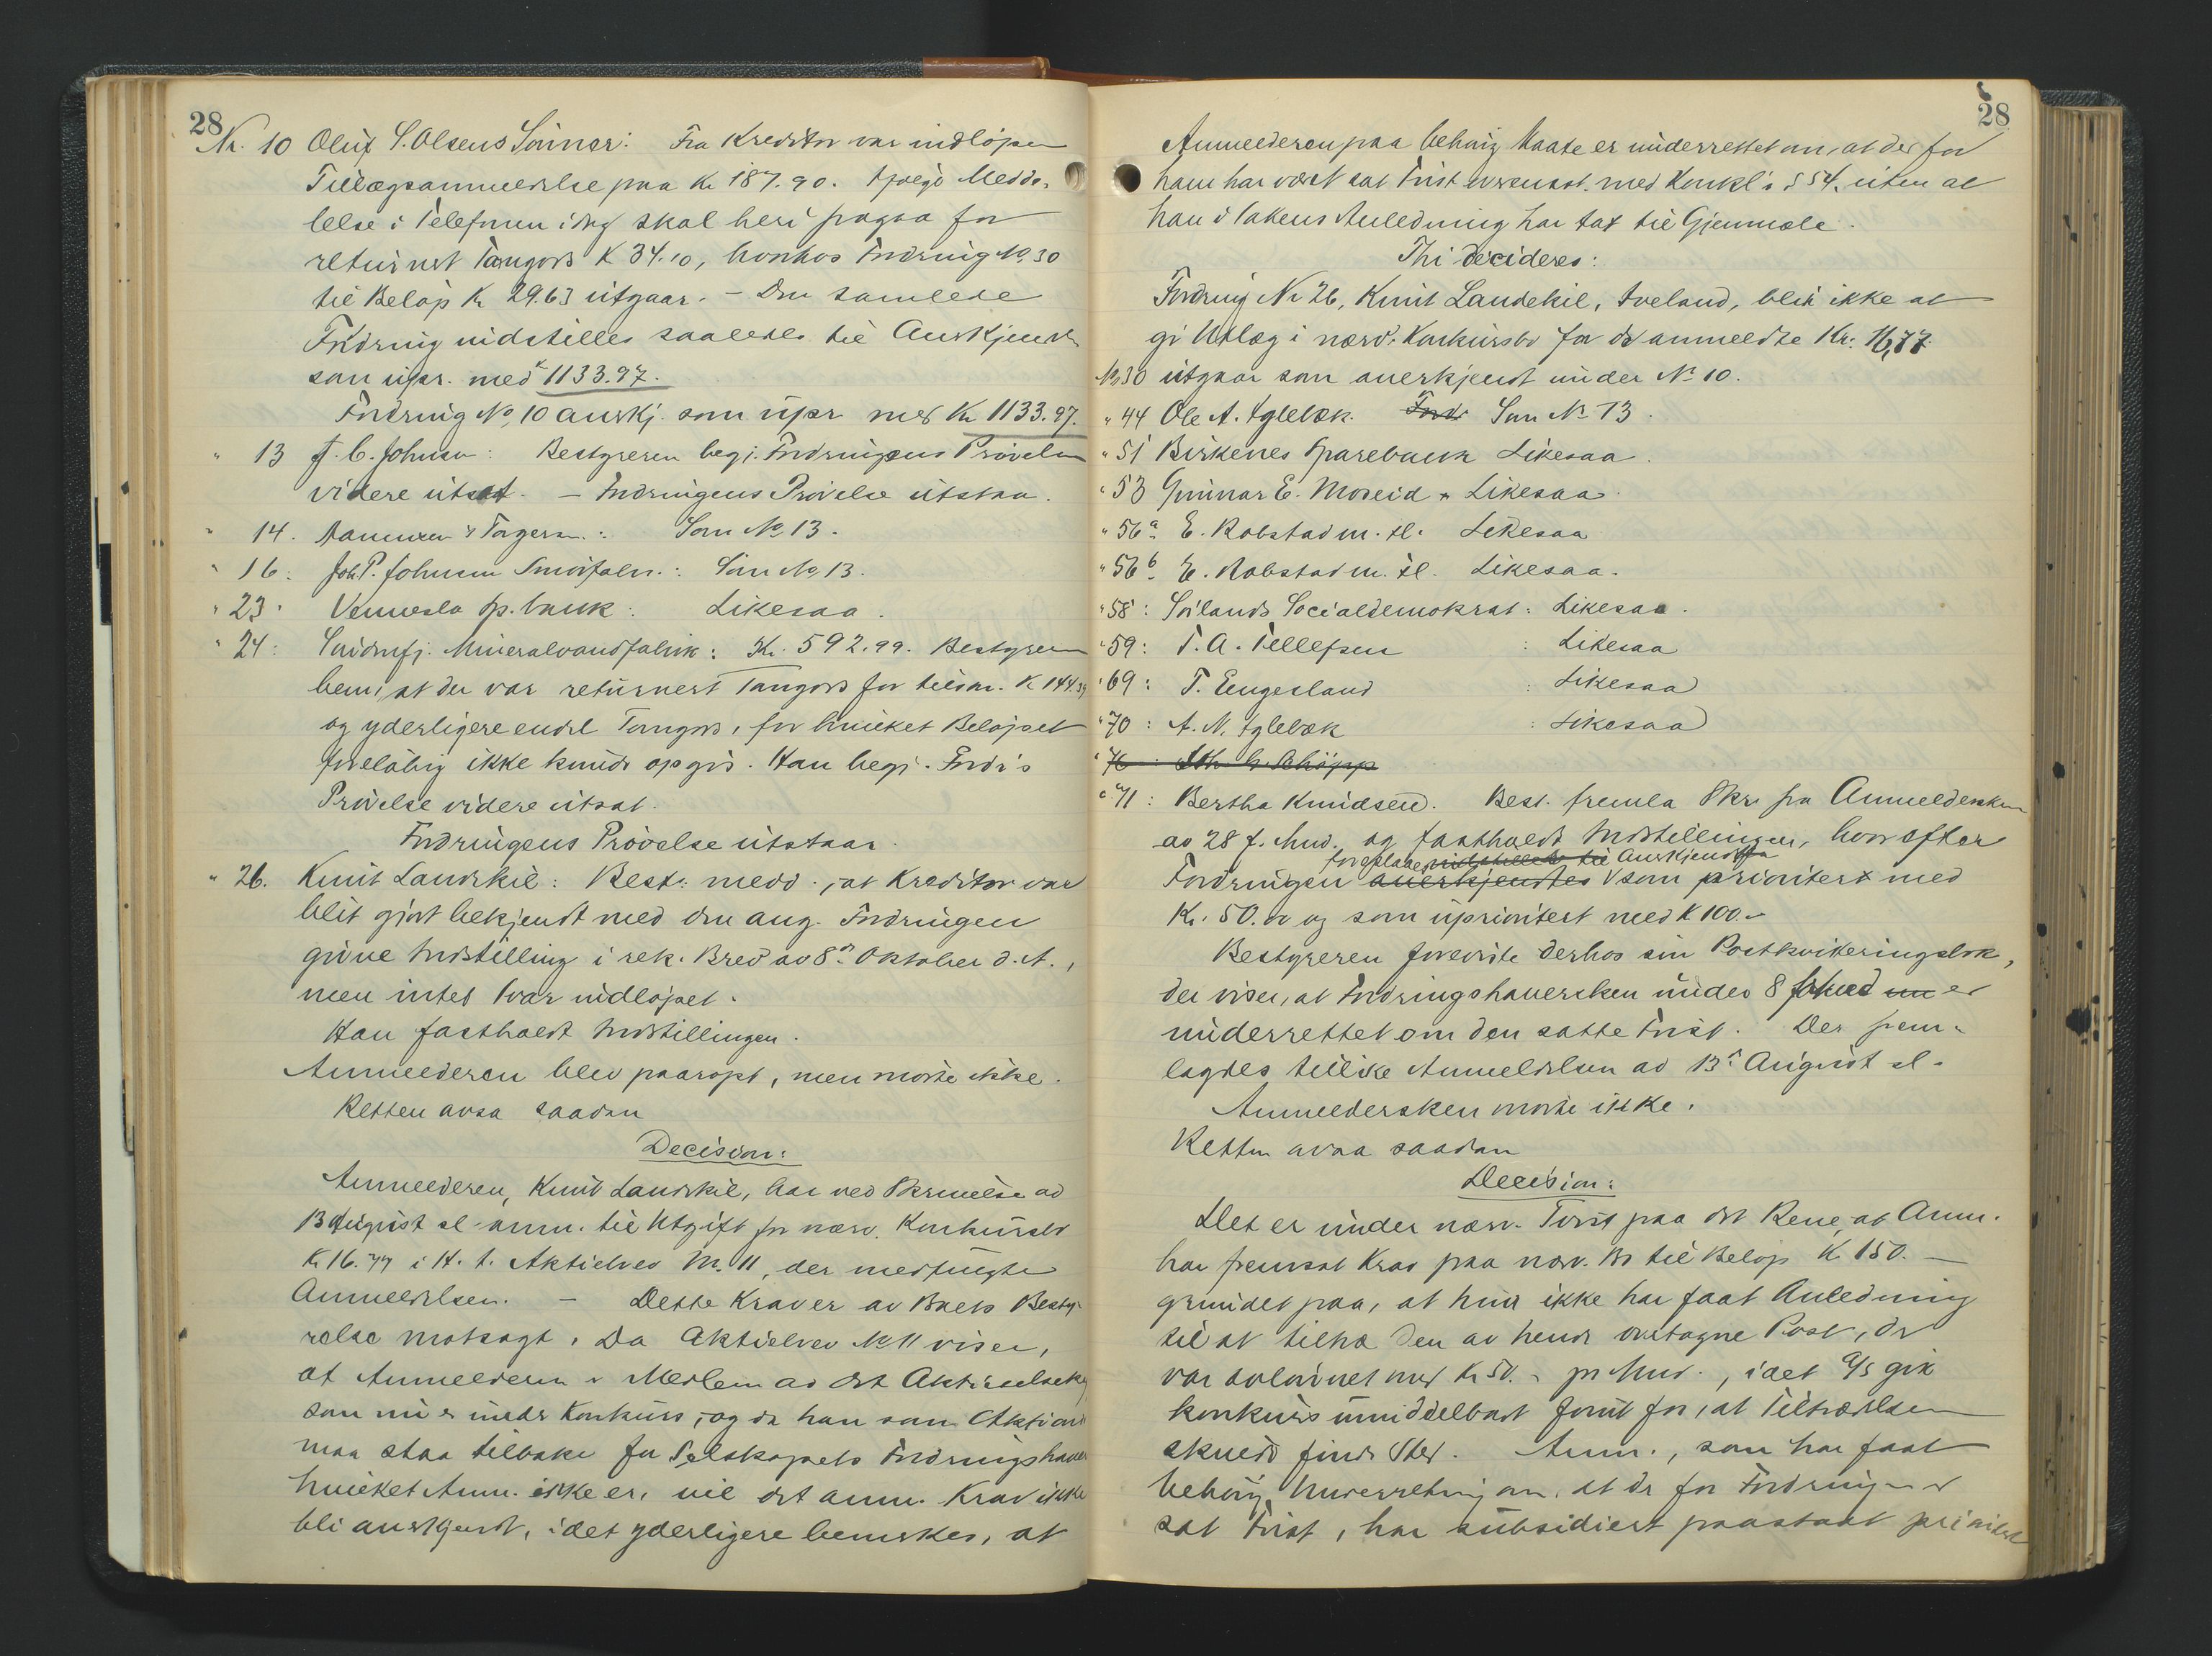 28
Nr. 10 Oluf S. Olsens Sönner: Fra Kreditor var indlöpen
Tillægsanmeldelse paa Kr 187.90. Ifölge Medde-
lelse i Telefonen idag skal heri fragaa for
returnert Tomgods K 34.10, hvorhos Fordring No 30
til Belöp Kr 29.63 utgaar. – Den samlede
Fordring indstilles saaledes til Anerkjendelse
som upr. med K 1133.97.
Fordring No 10 anerkj. som upr med Kr 1133.97.
" 13 J. C. Johnsen: Bestyreren begj. Fordringens Prövelse
videre utsat. – Fordringens Prövelse utstaar.
" 14. & Torgersen.: Som No 13.
" 16: Joh. P. Johnsen Smörfabr.: Som No 13.
" 23: Vennesla Sp.bank: Likesaa.
" 24: Mineralvandfabrik: Kr. 592.99. Bestyreren
bem., at der var returnert Tomgods for tilsm. K 144.39
og yderligere endel Tomgods, for hvilket Belöpet
forelöbig ikke kunde opgis. Han begj. Fordr's
Prövelse videre utsat.
Fordringens Prövelse utstaar.
" 26. Knut Landekil: Best: medd., at Kreditor var
blit gjort bekjendt med den ang. Fordringen
givne Indstilling i rek. Brev av 8de Oktober d.A.,
men intet Svar indlöpet.
Han fastholdt Indstillingen.
Anmelderen blev paaropt, men mötte ikke.
Retten avsa saadan
Decision:
Anmelderen, Knut Landekil, har ved Skrivelse av
13 August sl. anm. til Utgift for nærv. Konkursbo
K 16.77 i H. t. Aktiebrev No. 11, der medfulgte
Anmeldelsen. – Dette Krav er av Boets Besty-
relse motsagt. Da Aktiebrev No 11 viser,
at Anmelderen er Medlem av det Aktieselskap
som nu er under Konkurs, og da han som Aktionær
maa staa tilbake for Selskapets Fordringshavere
hvilket Anm. ikke er, vil det anm. Krav ikke
bli anerkjendt, idet yderligere bemerkes, at
28
Anmelderen paa behörig Maate er underrettet om, at der for
ham har været sat Frist overensst. med Konkl's § 54, uten at
han i Sakens Anledning har tat til Gjenmæle.
Thi decideres:
Fordring Nr 26, Knut Landekil, Tveland, blir ikke at
gi Utlæg i nærv. Konkursbo for de anmeldte Kr. 16,77.
No 30 utgaar som anerkjendt under No 10.
" 44 Ole A. Iglebæk. Fordr Som No 13.
" 51 Birkenes Sparebank Likesaa.
" 53 Gunnar E. Moseid Likesaa.
" 56a E. Robstad m. fl. Likesaa
" 56b E. Robstad m. fl. Likesaa.
" 58: Sörlands Socialdemokrat: Likesaa.
" 59: T. A. Tellefsen : Likesaa
" 69: T. Eugesland : Likesaa
" 70: A. N. Iglebæk : Likesaa
" 71: Bertha Knudsen. Best. fremla Skr. fra Anmeldersken
av 28 f. Mnd. og fastholdt Indstillingen, hvorefter
foreslaaes indstillet til Anerkjendelse
Fordringen anerkjendtes som prioritert med
Kr. 50.00 og som uprioritert med K 100.–
Bestyreren foreviste derhos sin Postkvitteringsbok,
der viser, at Fordringshaversken under 8 er
underrettet om den satte Frist. Der frem-
lagdes tillike Anmeldelsen av 13de August sl.
Anmeldersken mötte ikke.
Retten avsa saadan
Decision:
Det er under nærv. Tvist paa det Rene, at Anm.
har fremsat Krav paa nærv. Bo til Belöp K 150.–
grundet paa, at hun ikke har faat Anledning
til at tiltræ den av hende overtagne Post, der
var avlönnet med Kr 50.– pr Mnd., idet A/S gik
konkurs umiddelbart forut for, at Tiltrædelsen
skulde finde Sted. Anm., som har faat
behörig Underretning om, at der for Fordringen er
sat Frist, har subsidiert paastaat prioritert